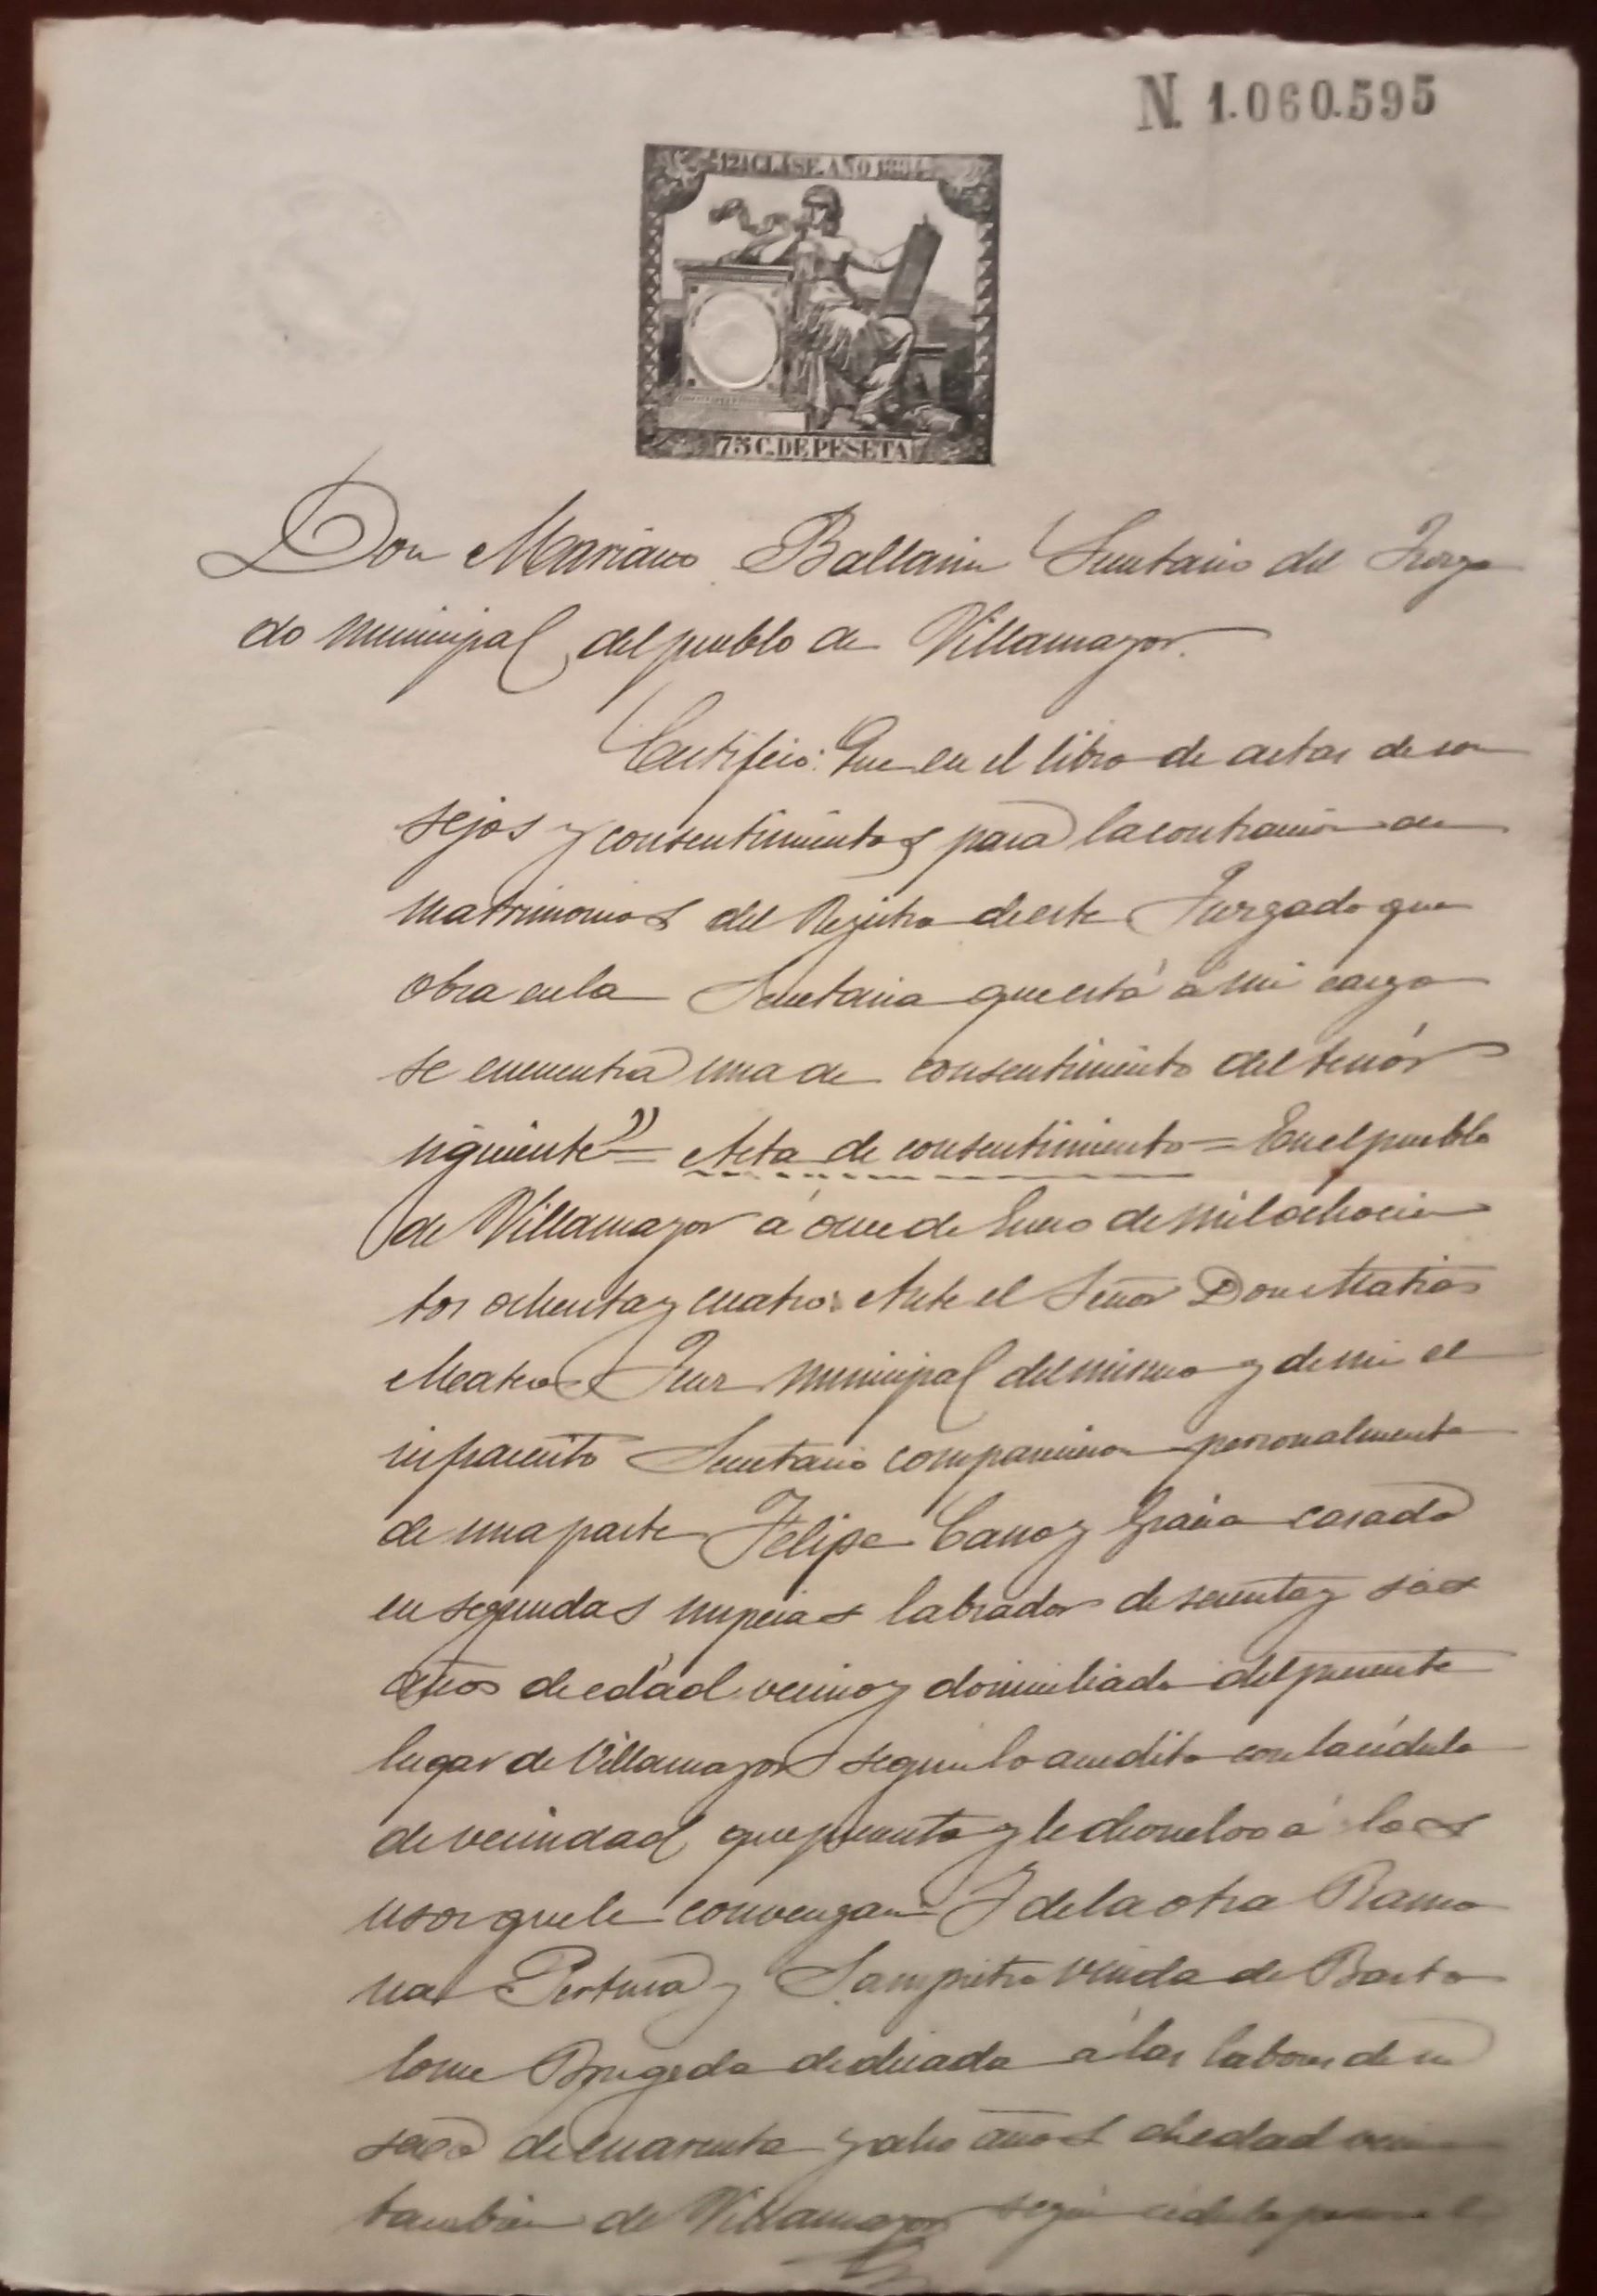 N. 1.060.595
12ª CLASE. AÑO 1884
75 C. DE PESETA
Don Mariano Ballarin Secretario del Juzga
do municipal del pueblo de Villamayor.
Certifico: Que en el libro de actas de con
sejos y consentimientos para la contracion de
matrimonios del Registro de este Juzgado que
obra en la Secretaria que está á mi cargo
se encuentra una de consentimiento del tenór
siguiente" = Acta de consentimiento = En el pueblo
de Villamayor á once de Enero de mil ochocien
tos ochenta y cuatro: Ante el Señor Don Matias
Meateos Juez municipal del mismo y de mi el
infraescrito Secretario comparecieron personalmente
de una parte Felipe Cano y Gracia casado
en segundas nupcias labrador de sesenta y seis
años de edad vecino y domiciliado del presente
lugar de Villamayor segun lo acredito con la cédula
de vecindad que presenta y le devuelvo á los
usos que le convengan Y de la otra Ramo
na Pertusa y Sampietro viuda de Barto
lome Brugeda dedicada á las labores de su
sexo de cuarenta y ocho años de edad vecina
tambien de Villamayor según cédula personal